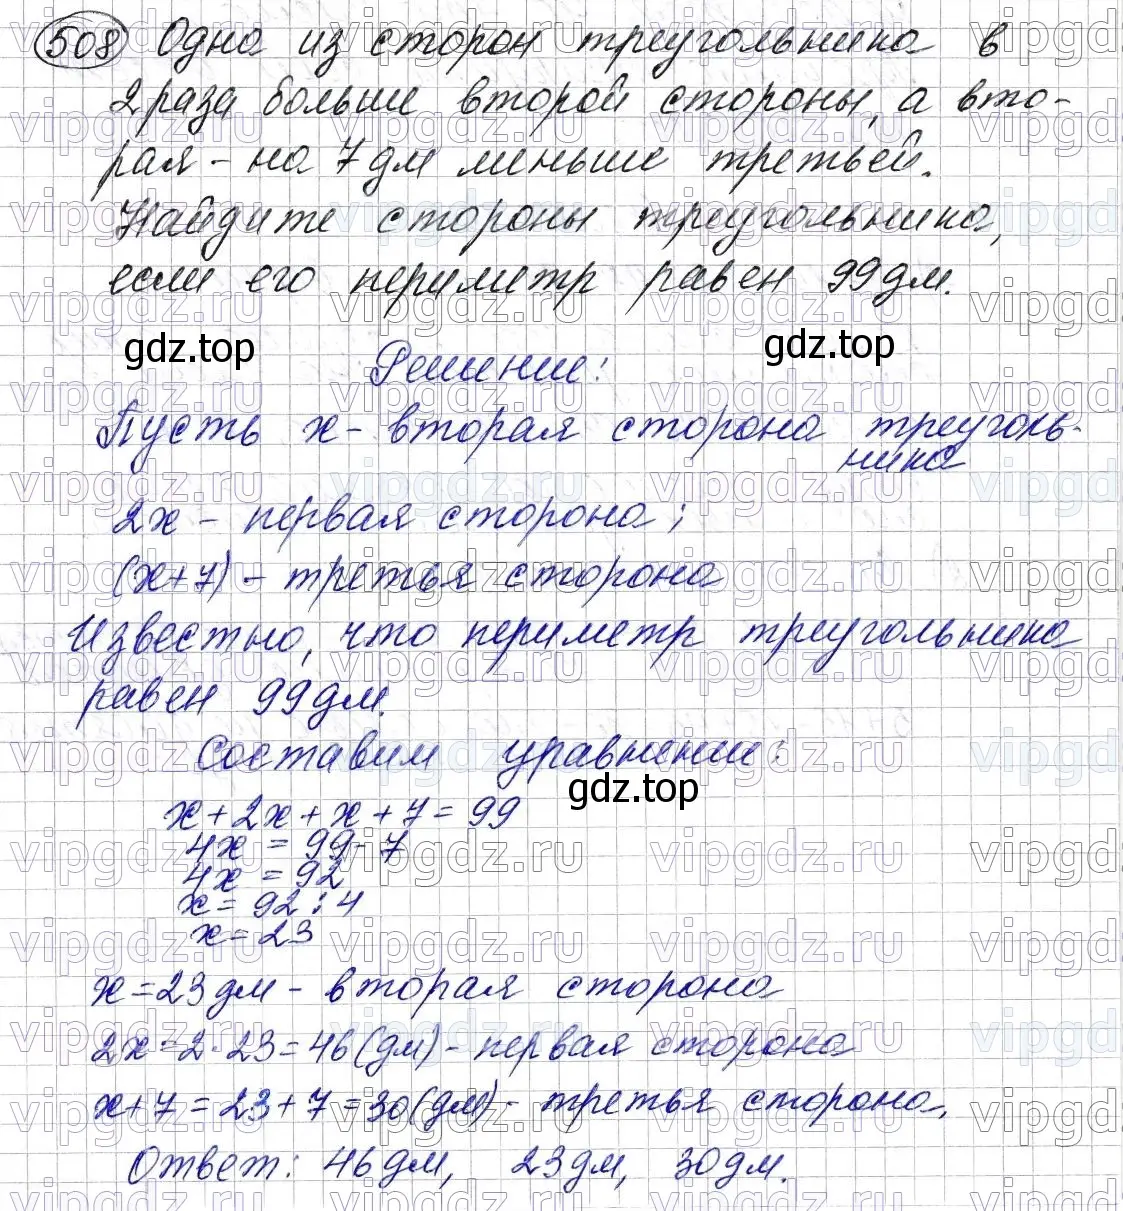 508 Одна из сторон треугольника в
2 раза больше второй стороны, а вто-
рая - на 7 дм меньше третьей.
Найдите стороны треугольника,
если его периметр равен 99 дм.
gdz.top
gdz.top
Решение:
Пусть x - вторая сторона треуголь-
ника
2x - первая сторона;
(x+7) - третья сторона
Известно, что периметр треугольника
равен 99 дм.
Составим уравнение:
gdz.top
x + 2x + x + 7 = 99
4x = 99 - 7
4x = 92
x = 92 : 4
x = 23
x = 23 дм - вторая сторона
2x = 2 · 23 = 46 (дм) - первая сторона
x + 7 = 23 + 7 = 30 (дм) - третья сторона.
Ответ: 46 дм, 23 дм, 30 дм.
vipgdz.ru